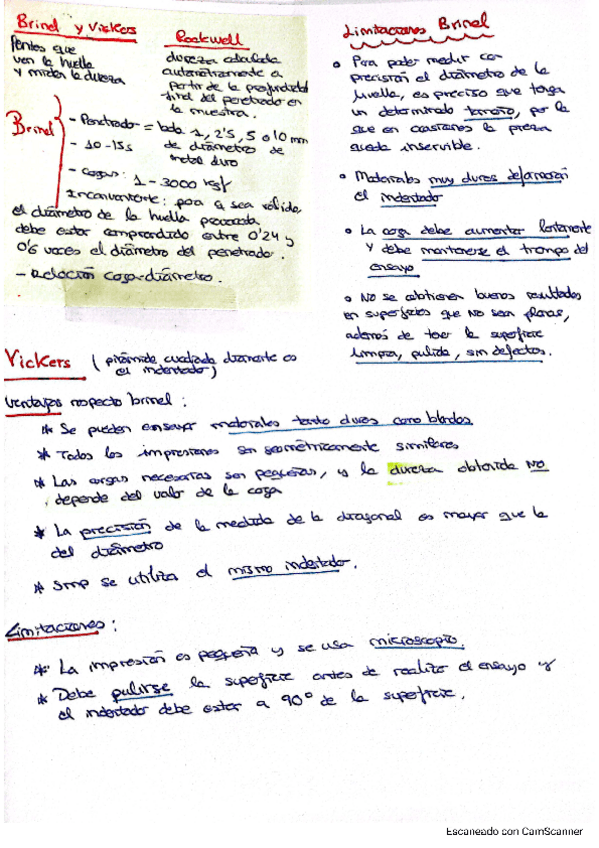 Brinel y Vickers
Pentes que
ven la huella
y miden la dureza
Rockwell
dureza calculada
automáticamente a
partir de la profundidad
final del penetrador en
la muestra.
Brinel
- Penetrador = bola 1, 2'5, 5 o 10 mm
de diámetro de
metal duro
- 10-15s
- Cargas: 1 - 3000 kgf
Inconveniente: para q sea válida
el diámetro de la huella provocada
debe estar comprendido entre 0'24 y
0'6 veces el diámetro del penetrador.
- Relación carga-diámetro.
Limitaciones Brinel
Para poder medir con
precisión el diámetro de la
huella, es preciso que tenga
un determinado tamaño, por lo
que en ocasiones la pieza
queda inservible.
Materiales muy duros deformarán
el indentador
La carga debe aumentar lentamente
y debe mantenerse el tiempo del
ensayo
No se obtienen buenos resultados
en superficies que no sean planas,
además de tener la superficie
limpia, pulida, sin defectos.
Vickers (pirámide cuadrada diamante es
el indentador)
Ventajas respecto brinel:
* Se pueden ensayar materiales tanto duros como blandos
* Todas las impresiones son geométricamente similares
* Las cargas necesarias son pequeñas, y la dureza obtenida NO
depende del valor de la carga
* La precisión de la medida de la diagonal es mayor que la
del diámetro
* Smp se utiliza el mismo indentador.
Limitaciones:
* La impresión es pequeña y se usa microscopio.
* Debe pulirse la superficie antes de realizar el ensayo y
el indentador debe estar a 90° de la superficie.
Escaneado con CamScanner